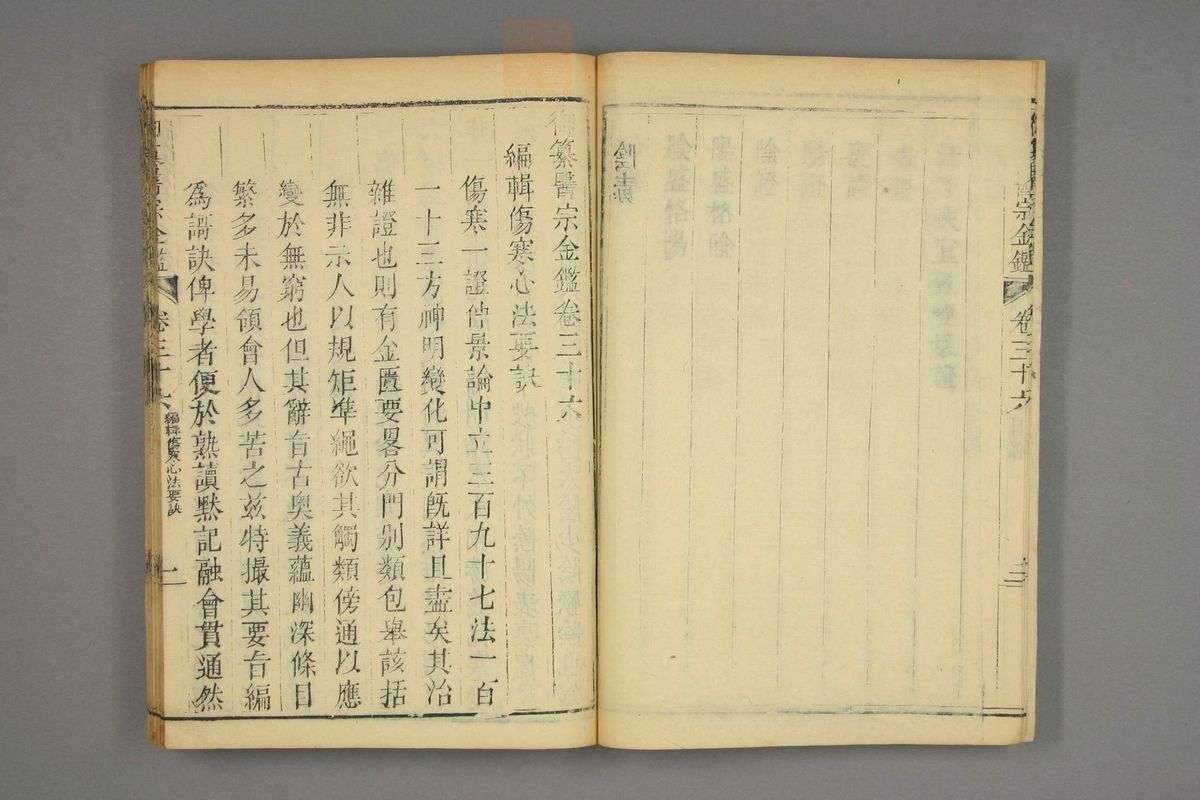 宗金鑑 卷三十六 目錄 三
陰毒
御纂醫宗金鑑卷三十六
編輯傷寒心法要訣
傷寒一證仲景論中立三百九十七法一百
一十三方神明變化可謂旣詳且盡矣其治
雜證也則有金匱要畧分門别類包舉該括
無非示人以規矩準繩欲其觸類傍通以應
變於無窮也但其辭旨古奥義蘊幽深條目
繁多未易領會人多苦之兹特撮其要旨編
為謌訣俾學者便於熟讀默記融會貫通然
卷三十六 編輯傷寒心法要訣 一